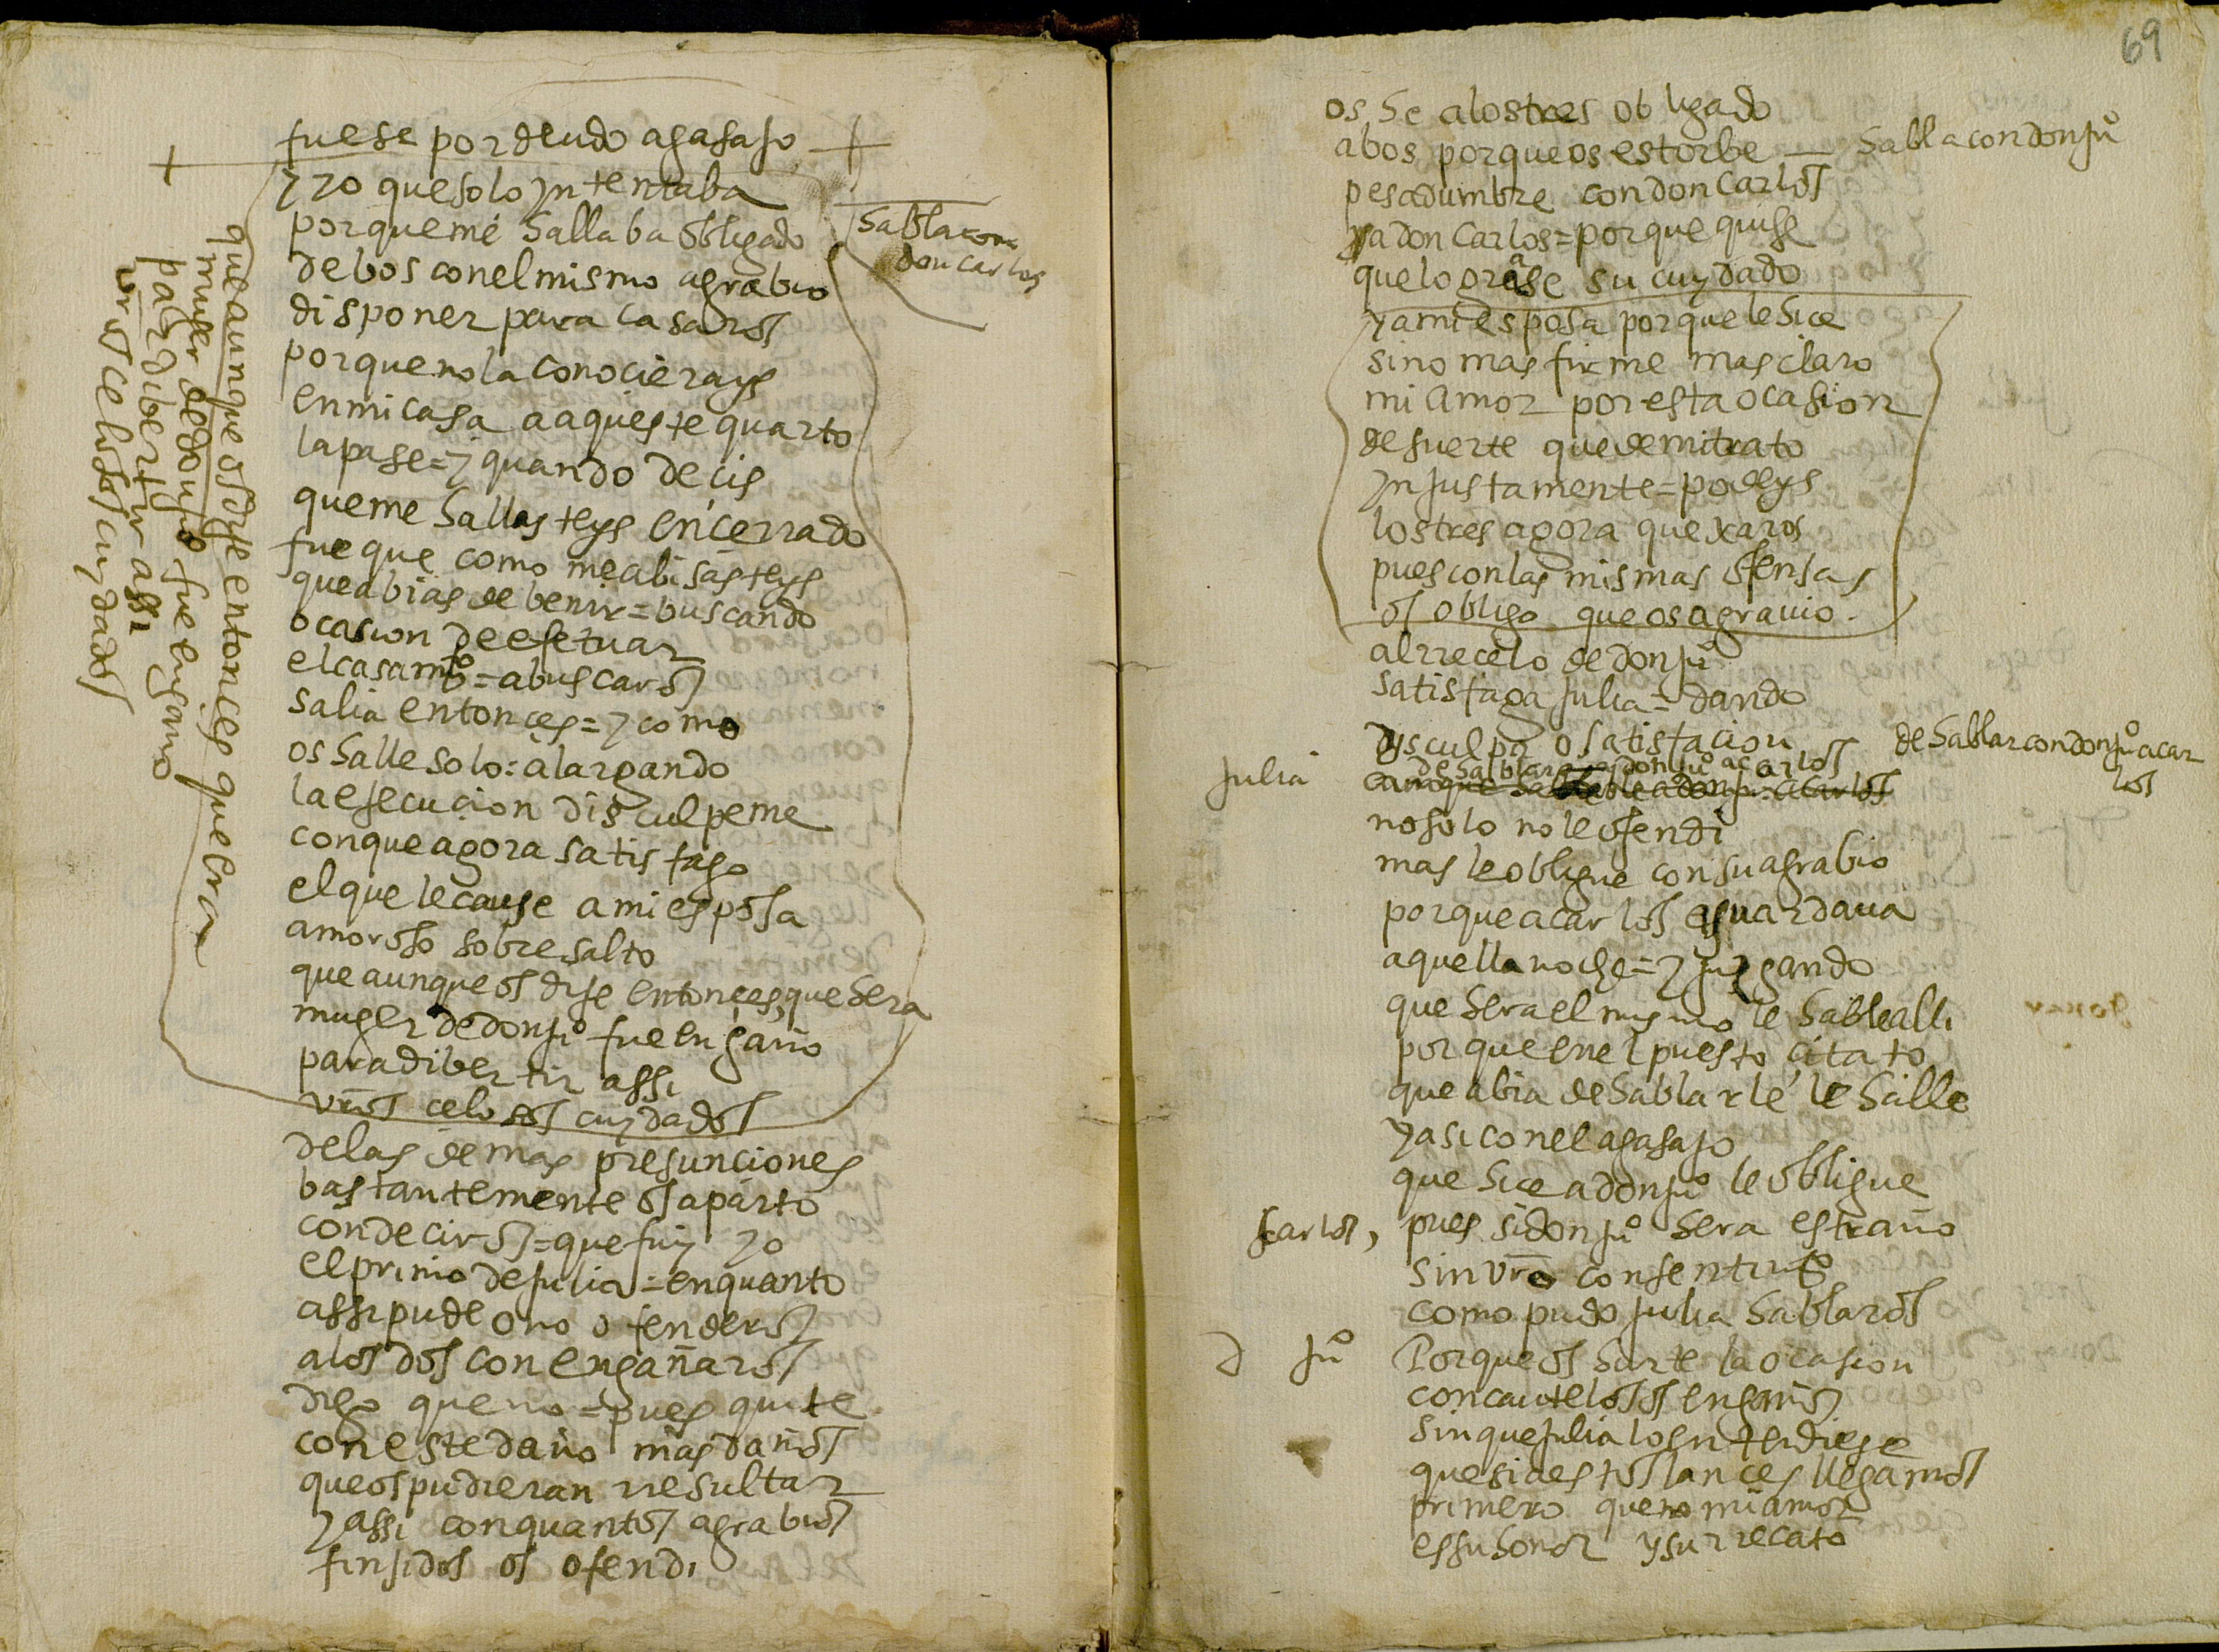 fuese por deudo agasajo
y yo que solo yntentaba
porque me hallaba obligado
de bos con el mismo agrabio
disponer para casaros
porque no la conocierays
en mi casa a aqueste quarto
la pase = y quando decis
que me hallasteys encerrado
fue que como me abisasteys
que abias de benir = buscando
ocasion de efetuar
el casamto = a buscaros
salia entonces = y como
os halle solo = alargando
la esecucion disculpeme
con que agora satisfago
el que le cause a mi esposa
amoroso sobresalto
que aunque os dije entonces, que hera
muger de don juo fue engaño
para dibertir assi
vros celosos cuydados
de las demas presunciones
bastantemente os aparto
con deciros = que fuy yo
el primo de julia = en quanto
assi pude o no ofenderos
a los dos con engañaros
digo que no = pues quite
con este daño mas daños
que os pudieran rresultar
y assi con quantos agrabios
finjidos os ofendi
habla con
don carlos
que aunque os dije entonces que hera
muger de don juo fue engaño
para dibertir assi
vros celosos cuydados
69
os he a los tres obligado
a bos porque os estorbe
habla con don juo
pesadumbre con don Carlos
y a don Carlos = porque quise
que lograse su cuydado
y a mi esposa porque le hice
sino mas firme mas claro
mi amor por esta ocasion
de suerte que de mi trato
ynjustamente = podeys
los tres agora quexaros
pues con las mismas ofensas
os obligo que os agravio.
al rrecelo de don juo
satisfaga julia = dando
dysculpa o satisfacion
de hablar con don juo a car
los
de hablar a don juo a carlos
julia
no solo no le ofendi
mas le obligue con su agrabio
porque a carlos aguardaua
aquella noche = y juzgando
que hera el mysmo le hable alli
porque en el puesto citato
que abia de hablarle le halle
y asi con el agasajo
que hice a don juo le obligue
carlos, pues si don juo hera estraño
sin vro consentimto
como pudo julia hablaros
D juo Porque os hurte la ocasion
con cautelosos engaños
sin que julia lo entendiese
que si a estos lances llegamos
primero que no mi amor
es su honor y su rrecato